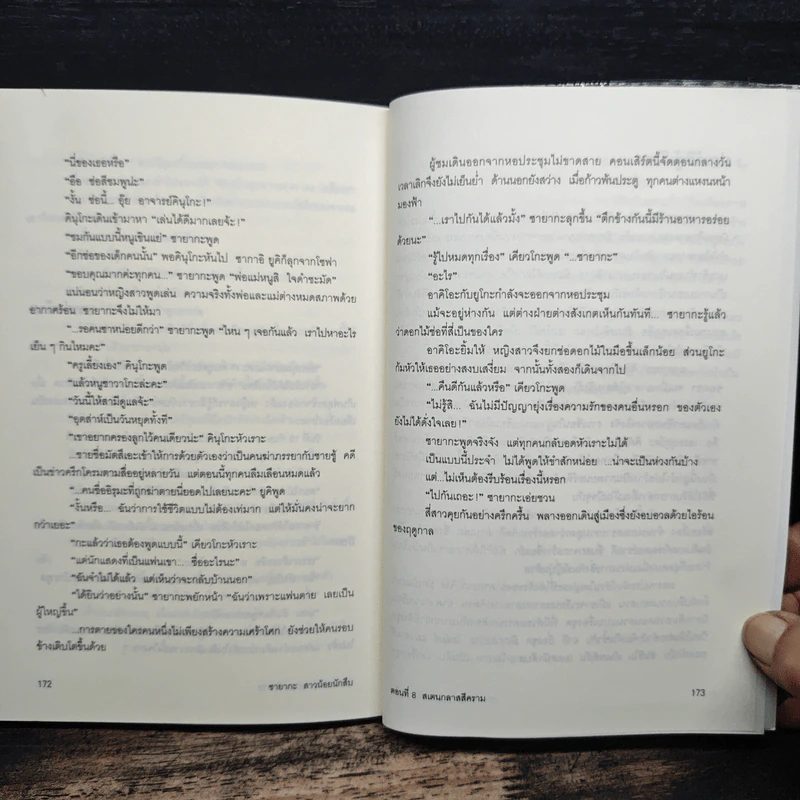 “นี่ของเธอหรือ”
“อือ ช่อสีชมพูน่ะ”
“งั้น ช่อนี้... อุ๊ย อาจารย์คินุโกะ!”
คินุโกะเดินเข้ามาหา “เล่นได้ดีมากเลยจ้ะ!”
“ชมกันแบบนี้หนูเขินแย่” ซายากะพูด
“อีกช่อของเด็กคนนั้น” พอคินุโกะหันไป ซากาอิ ยูคิก็ลุกจากโซฟา
“ขอบคุณมากค่ะทุกคน...” ซายากะพูด “พ่อแม่หนูสิ ใจดำชะมัด”
แน่นอนว่าหญิงสาวพูดเล่น ความจริงทั้งพ่อและแม่ต่างหมดสภาพด้วย
อากาศร้อน ซายากะจึงไม่ให้มา
“...รอคนซาหน่อยดีกว่า” ซายากะพูด “ไหน ๆ เจอกันแล้ว เราไปหาอะไร
เย็น ๆ กินไหมคะ”
“ครูเลี้ยงเอง” คินุโกะพูด
“แล้วหนูซาวาโกะล่ะคะ”
“วันนี้ให้สามีดูแลจ้ะ”
“อุตส่าห์เป็นวันหยุดทั้งที”
“เขาอยากครองลูกไว้คนเดียวน่ะ” คินุโกะหัวเราะ
...ชายชื่อมัตสึเอะเข้าให้การด้วยตัวเองว่าเป็นคนฆ่าภรรยากับชายชู้ คดี
เป็นข่าวครึกโครมตามสื่ออยู่หลายวัน แต่ตอนนี้ทุกคนลืมเลือนหมดแล้ว
“...คนชื่ออิรุมะที่ถูกฆ่าตายนี่ยอดไปเลยนะคะ” ยูคิพูด
“งั้นหรือ... ฉันว่าการใช้ชีวิตแบบไม่ต้องเท่มาก แต่ให้มั่นคงน่าจะยาก
กว่าเยอะ”
“กะแล้วว่าเธอต้องพูดแบบนี้” เคียวโกะหัวเราะ
“แต่นักแสดงที่เป็นแฟนเขา... ชื่ออะไรนะ”
“ฉันจำไม่ได้แล้ว แต่เห็นว่าจะกลับบ้านนอก”
“ได้ยินว่าอย่างนั้น” ซายากะพยักหน้า “ฉันว่าเพราะแฟนตาย เลยเป็น
ผู้ใหญ่ขึ้น”
...การตายของใครคนหนึ่งไม่เพียงสร้างความเศร้าโศก ยังช่วยให้คนรอบ
ข้างเติบโตขึ้นด้วย
172
ซายากะ สาวน้อยนักสืบ
ผู้ชมเดินออกจากหอประชุมไม่ขาดสาย คอนเสิร์ตนี้จัดตอนกลางวัน
เวลาเลิกจึงยังไม่เย็นย่ำ ด้านนอกยังสว่าง เมื่อก้าวพ้นประตู ทุกคนต่างแหงนหน้า
มองฟ้า
“...เราไปกันได้แล้วมั้ง” ซายากะลุกขึ้น “ตึกข้างกันนี้มีร้านอาหารอร่อย
ด้วยนะ”
“รู้ไปหมดทุกเรื่อง” เคียวโกะพูด “...ซายากะ”
“อะไร”
อาคิโอะกับยูโกะกำลังจะออกจากหอประชุม
แม้จะอยู่ห่างกัน แต่ต่างฝ่ายต่างสังเกตเห็นกันทันที... ซายากะรู้แล้ว
ว่าดอกไม้ช่อที่สี่เป็นของใคร
อาคิโอะยิ้มให้ หญิงสาวจึงยกช่อดอกไม้ในมือขึ้นเล็กน้อย ส่วนยูโกะ
ก้มหัวให้เธออย่างสงบเสงี่ยม จากนั้นทั้งสองก็เดินจากไป
“...คืนดีกันแล้วหรือ” เคียวโกะพูด
“ไม่รู้สิ... ฉันไม่มีปัญญายุ่งเรื่องความรักของคนอื่นหรอก ของตัวเอง
ยังไม่ได้ดั่งใจเลย!”
ซายากะพูดจริงจัง แต่ทุกคนกลับอดหัวเราะไม่ได้
เป็นแบบนี้ประจำ ไม่ได้พูดให้ขำสักหน่อย ...น่าจะเป็นห่วงกันบ้าง
แต่...ไม่เห็นต้องรีบร้อนเรื่องนี้หรอก
“ไปกันเถอะ!” ซายากะเอ่ยชวน
สี่สาวคุยกันอย่างครึกครื้น พลางออกเดินสู่เมืองซึ่งยังอบอวลด้วยไอร้อน
ของฤดูกาล
ตอนที่ 8 สเตนกลาสสีคราม
173